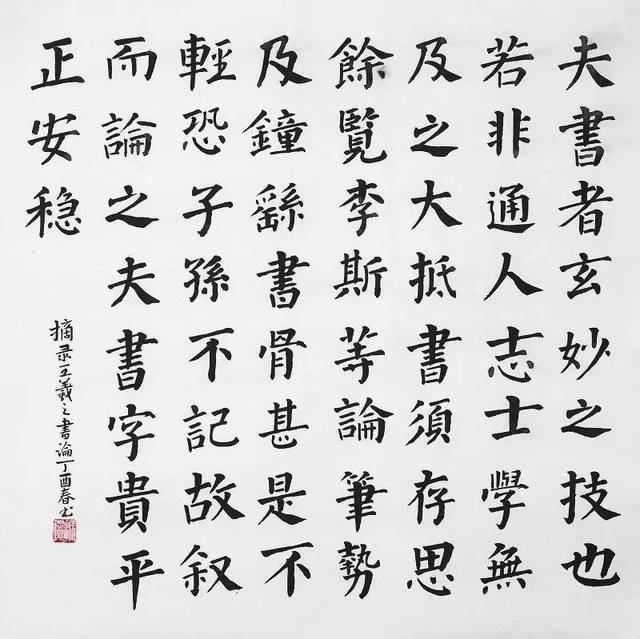 夫書者玄妙之技也
若非通人志士學無
及之大抵書須存思
餘覽李斯等論筆勢
及鐘繇書骨甚是不
輕恐子孫不記故叙
而論之夫書字貴平
正安稳
摘录王羲之書論丁酉春书